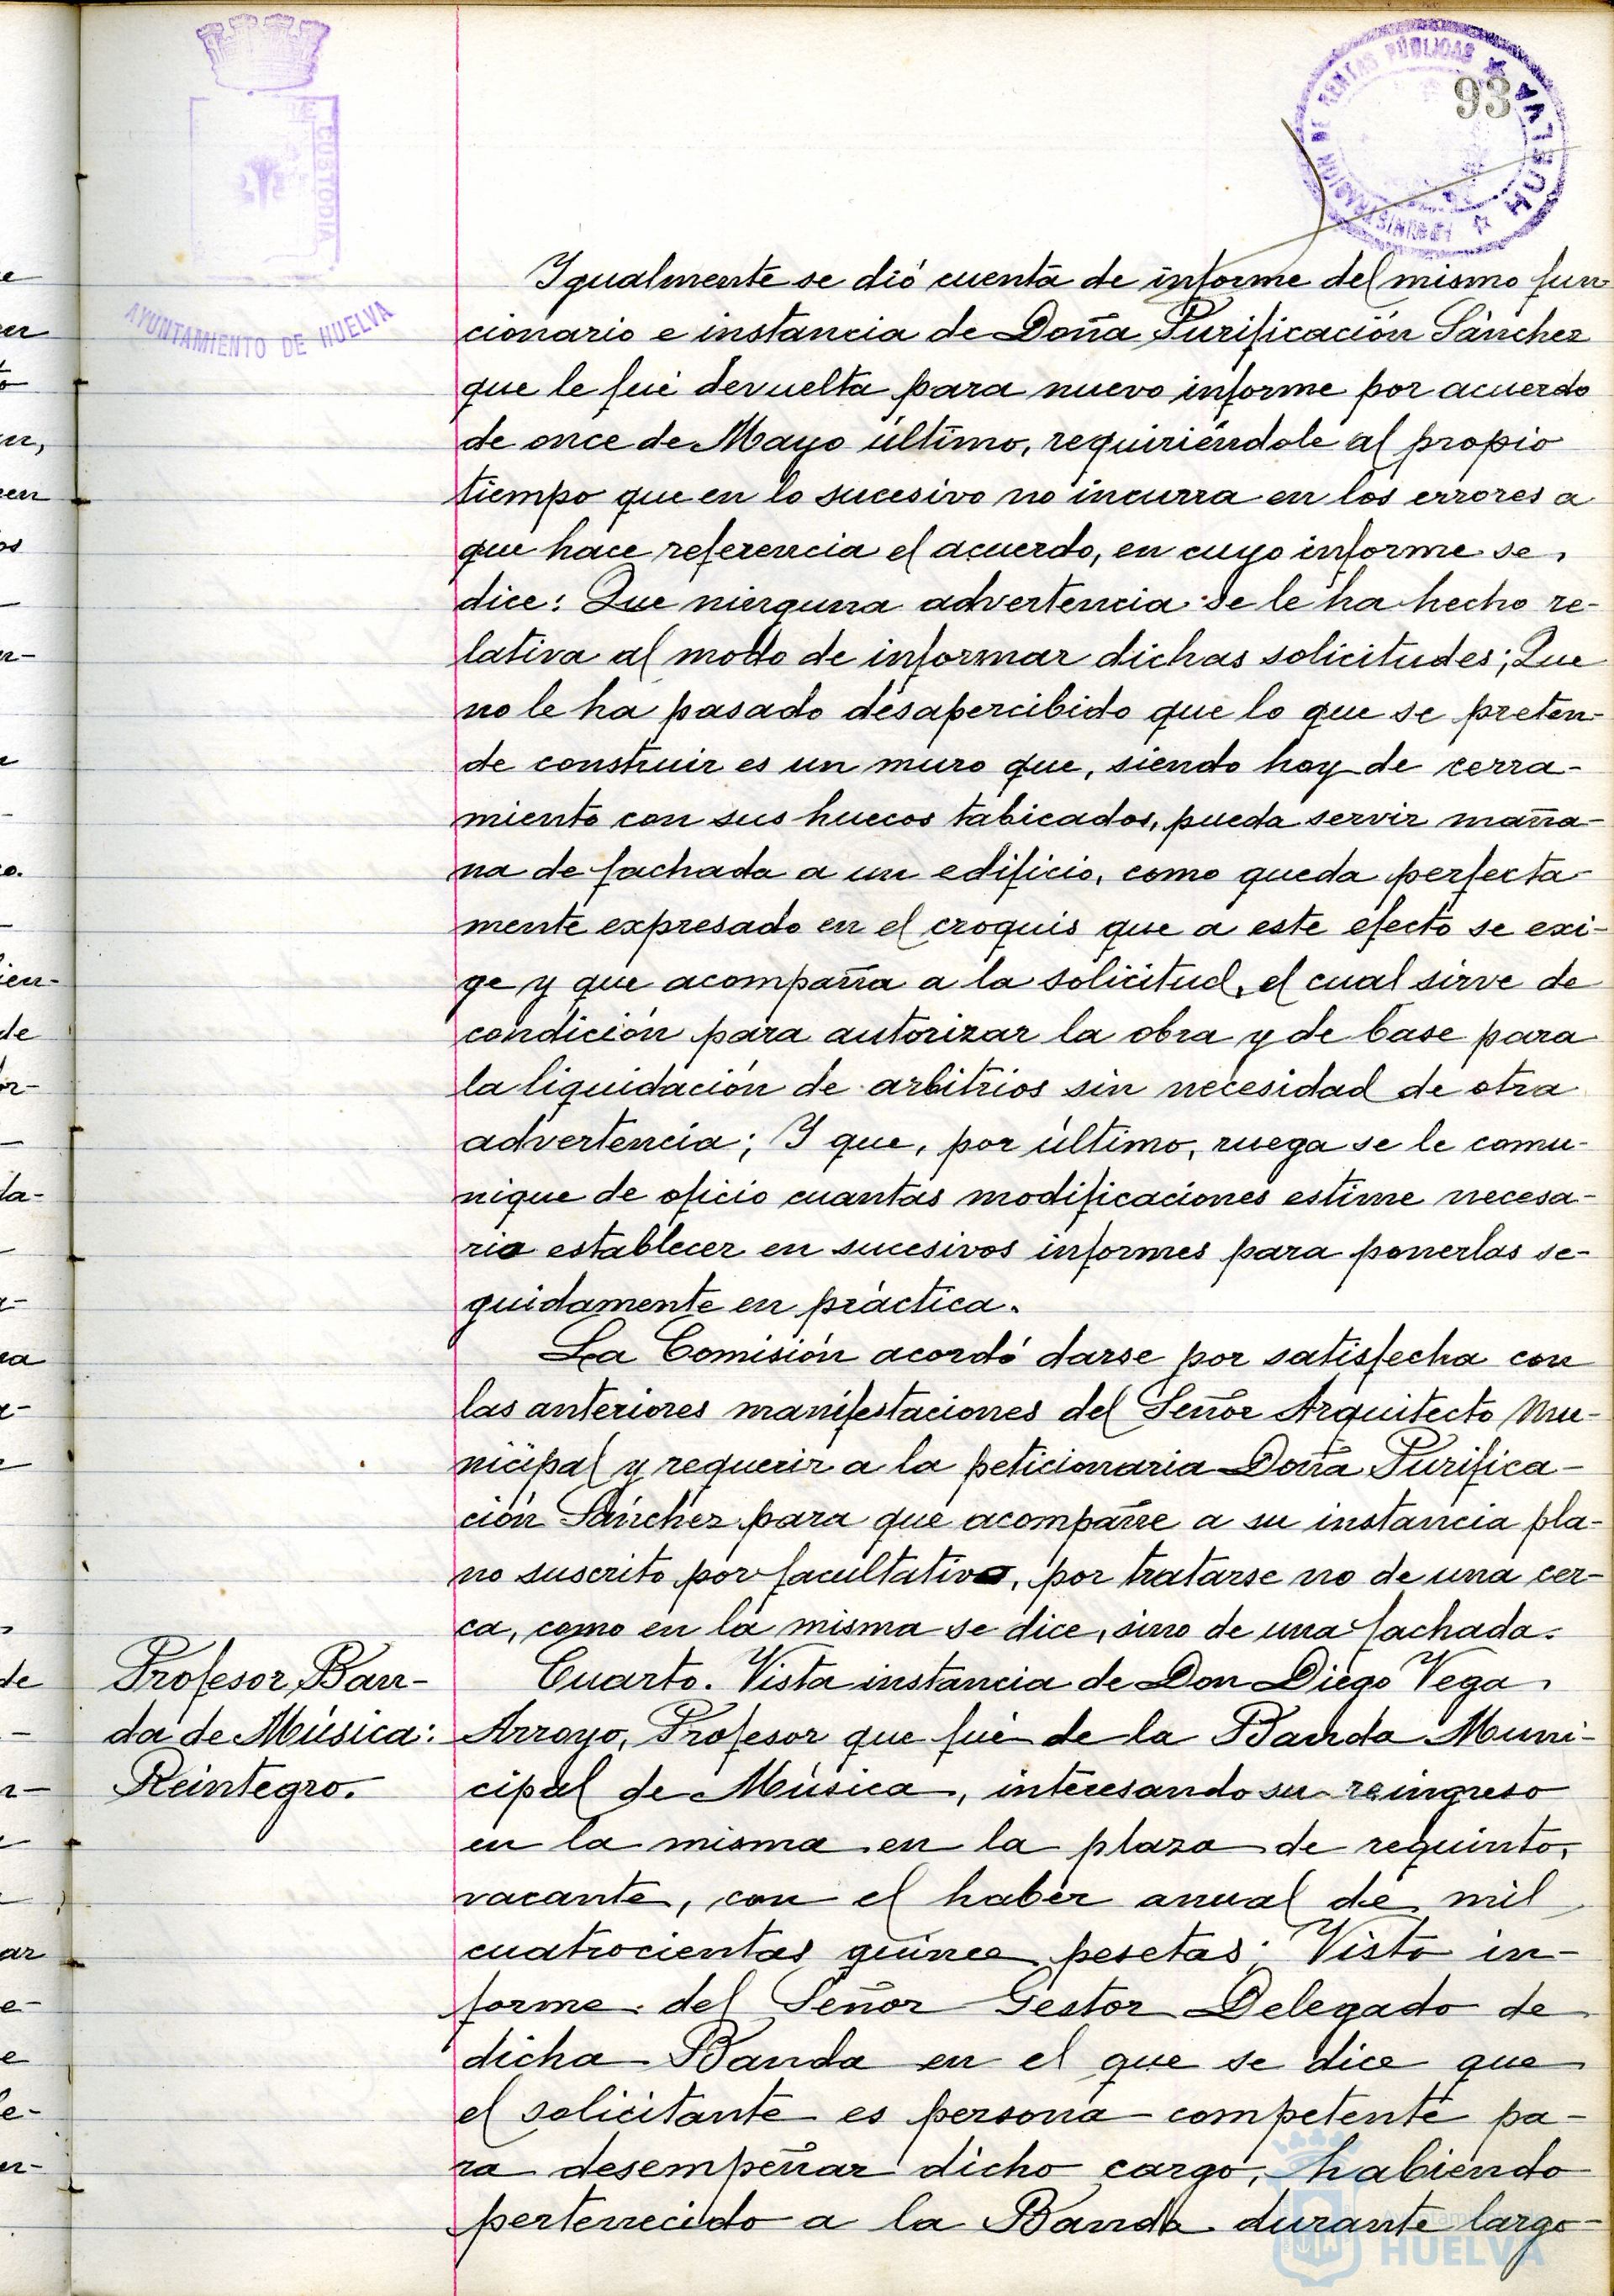 93
ADMINISTRACIÓN DE RENTAS PÚBLICAS
HUELVA
CUSTODIA
AYUNTAMIENTO DE HUELVA
Igualmente se dió cuenta de informe del mismo fun
cionario e instancia de Doña Purificación Sánchez
que le fué devuelta para nuevo informe por acuerdo
de once de Mayo último, requiriéndole al propio
tiempo que en lo sucesivo no incurra en los errores a
que hace referencia el acuerdo, en cuyo informe se
dice: Que ninguna advertencia se le ha hecho re-
lativa al modo de informar dichas solicitudes; Que
no le ha pasado desapercibido que lo que se preten-
de construir es un muro que, siendo hoy de cerra-
miento con sus huecos tabicados, pueda servir maña-
na de fachada a un edificio, como queda perfecta-
mente expresado en el croquis que a este efecto se exi-
ge y que acompaña a la solicitud, el cual sirve de
condición para autorizar la obra y de base para
la liquidación de arbitrios sin necesidad de otra
advertencia; Y que, por último, ruega se le comu-
nique de oficio cuantas modificaciones estime necesa-
rio establecer en sucesivos informes para ponerlas se-
guidamente en práctica.
La Comisión acordó darse por satisfecha con
las anteriores manifestaciones del Señor Arquitecto Mu-
nicipal y requerir a la peticionaria Doña Purifica-
ción Sánchez para que acompañe a su instancia pla-
no suscrito por facultativo, por tratarse no de una cer-
ca, como en la misma se dice, sino de una fachada.
Profesor Ban-
da de Música:
Reintegro.
Cuarto. Vista instancia de Don Diego Vega
Arroyo, Profesor que fué de la Banda Muni-
cipal de Música, interesando su reingreso
en la misma en la plaza de requinto,
vacante, con el haber anual de mil
cuatrocientas quince pesetas; Visto in-
forme del Señor Gestor Delegado de
dicha Banda en el que se dice que
el solicitante es persona competente pa-
ra desempeñar dicho cargo, habiendo
pertenecido a la Banda durante largo
Ayuntamiento de
HUELVA